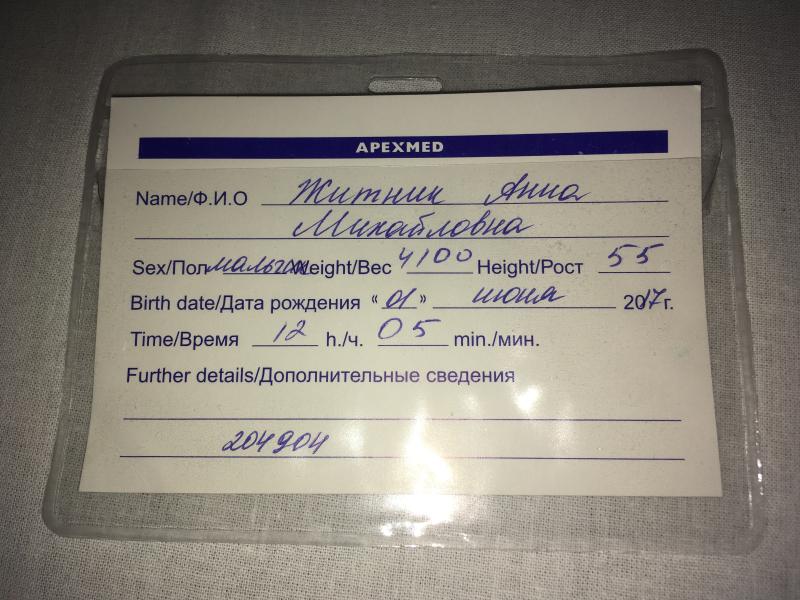 APEXMED
Name/Ф.И.О Житник Анна
Михайловна
Sex/Пол мальчик Weight/Вес 4100 Height/Рост 55
Birth date/Дата рождения “01” июня 2017г.
Time/Время 12 h./ч. 05 min./мин.
Further details/Дополнительные сведения
204904